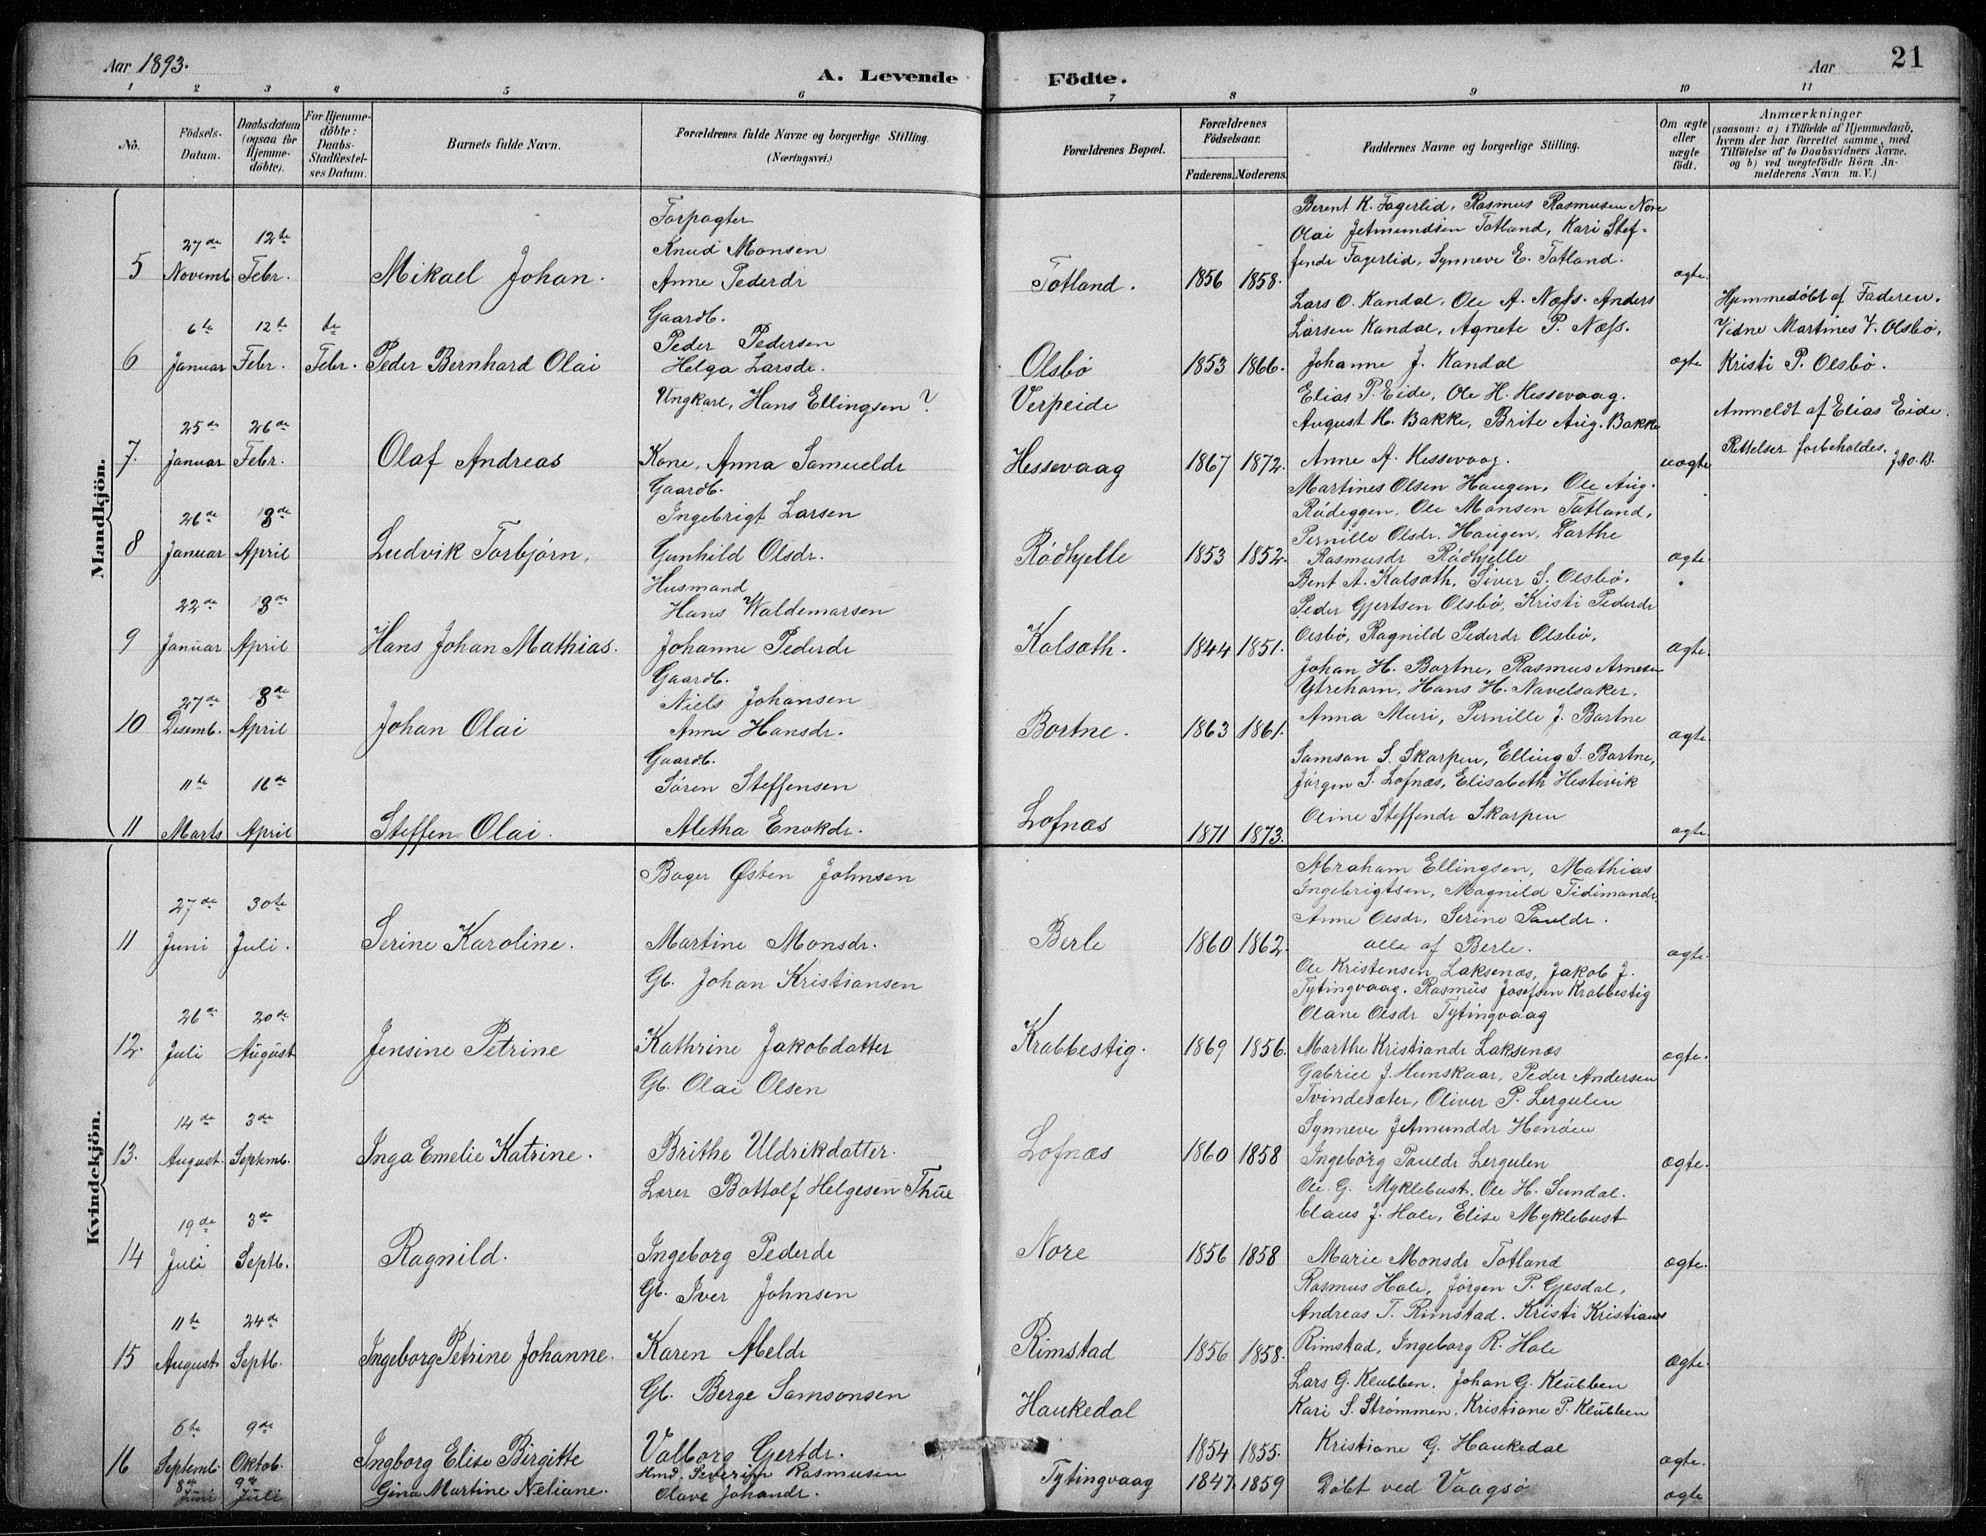 Aar 1893.
A. Levende Födte.
Aar
21
1 2 3 4 5 6 7 8 9 10 11
No.
Födsels-Datum.
Daabsdatum (ogsaa for Hjemme-döbte).
For Hjemme-döbte: Daabs-Stadfæstel-ses Datum.
Barnets fulde Navn.
Forældrenes fulde Navne og borgerlige Stilling. (Næringsvei.)
Forældrenes Bopæl.
Forældrenes Födselsaar.
Faderens. Moderens.
Faddernes Navne og borgerlige Stilling.
Om ægte eller uægte födt.
Anmærkninger
(saasom: a) i Tilfælde af Hjemmedaab, hvem der har forrettet samme, med Tilföielse af to Daabsvidners Navne, og b) ved uægtefödte Börn An-melderens Navn m. V.)
Mandkjön.
5 27de Novemb. 12te Febr. Mikael Johan.
Forpagter
Knud Monsen
Anne Pedersdr
Totland. 1856 1858.
Berent K. Fagerlid, Rasmus Rasmusen Nore
Olai Jetmundsen Totland, Kari Stef-
fensdr Fagerlid, Synneve E. Totland.
ægte.
6 6te Januar 12te Febr. te Febr. Peder Bernhard Olai
Gaardb.
Peder Pedersen
Helga Larsdr.
Olsbö 1853 1866.
Lars O. Kandal, Ole A. Næss. Anders
Larsen Kandal, Agnete P. Næss.
Johanne J. Kandal
ægte
Hjemmedöbt af Faderen.
Vidne Martines V. Olsbö,
Kristi P. Olsbö.
7. 25de Januar 26de Febr. Olaf Andreas
Ungkarl, Hans Ellingsen ?
Kone, Anna Samueldr
Verpeide
Hessevaag 1867 1872.
Elias P. Eide, Ole H. Hessevaag.
August H. Bakke, Brite Aug. Bakke
Anne A. Hessevaag.
uægte
Anmeldt af Elias Eide.
Rettelser forbeholdes.
8 26de Januar 3de April Ludvik Torbjörn.
Gaardb.
Ingebrigt Larsen
Gunhild Olsdr.
Rödhjelle 1853 1852.
Martines Olsen Haugen, Ole Aug.
Rödeggen, Ole Monsen Totland,
Pernille Olsdr. Haugen, Larthe
Rasmusdr Rödhjelle
ægte.
9 22de Januar 3de April Hans Johan Mathias.
Husmand
Hans Waldemarsen
Johanne Pedersdr
Kalsath. 1844 1851.
Bent A. Kalsath, Siver S. Olsbö.
Peder Gjertsen Olsbö, Kristi Pedersdr
Olsbö, Ragnild Pedersdr Olsbö,
ægte.
10 27de Desemb. 3de April Johan Olai
Gaardb.
Niels Johansen
Anne Hansdr.
Bortne. 1863 1861.
Johan H. Bortne, Rasmus Arnesen
Ytrehorn, Hans H. Navelsaker.
Anna Muri, Pernille J. Bortne
ægte.
11 11te Marts 16de April Steffen Olai.
Gaardb.
Sören Steffensen
Aletha Enokdr.
Lofnæs 1871 1873.
Samson S. Skorpen, Elling S. Bortne,
Jörgen S. Lofnæs, Elisabeth Hestvik
Oline Steffensdr Skorpen
ægte.
Kvindekjön.
11 27de Juni 30te Juli. Serine Karoline.
Bager Østen Johnsen
Martine Monsdr.
Berle 1860 1862.
Abraham Ellingsen, Mathias
Ingebrigtsen, Magnild Tidimandr,
Anne Olsdr, Serine Pauldr.
alle af Berle.
ægte.
12. 26de Juli 20de August Jensine Petrine
Gb. Johan Kristiansen
Kathrine Jakobdatter
Krabbestig. 1869 1856.
Ole Kristensen Laksenæs, Jakob J.
Tytingvaag. Rasmus Josefsen Krabbestig
Olane Olsdr Tytingvaag
Marthe Kristiandr Laksenæs
ægte.
13. 14de August. 3de Septemb. Inga Emelie Katrine.
Gb. Olai Olsen
Brithe Uldrikdatter.
Lofnæs 1860 1858
Gabriel J. Hunskaar, Peder Andersen
Tvindesæter, Oliver P. Lergulen
Synneve Jetmunddr Henöen
Ingeborg Pauldr Lergulen
ægte.
14 19de Juli 3de Septb. Ragnild.
Lærer Bottolf Helgesen Thue
Ingeborg Pedersdr
Nore 1856 1858
Ole G. Myklebust. Ole H. Sundal.
Claus J. Hole, Elise Myklebust
Marie Monsdr Totland
ægte.
15 11te August. 24de Septb. Ingeborg Petrine Johanne.
Gb. Iver Johnsen
Karen Abeldr
Rimstad 1856 1858.
Rasmus Hole, Jörgen P. Gjesdal,
Andreas T. Rimstad. Kristi Kristians
Rimstad, Ingeborg R. Hole
ægte.
16 6te Septemb. 9de Oktob. Ingborg Elise Birgitte
Gb. Berge Samsonsen
Valborg Gjertdr.
Haukedal 1854 1855.
Lars G. Klubben. Johan G. Klubben
Kari S. Strømmen. Kristiane P. Klubben
Kristiane G. Haukedal
ægte.
8de Juni 9de Juli Gina Martine Neliane.
Hmd. Severin Rasmusen
Olave Johandr.
Tytingvaag 1847 1859 Döbt ved Vaagsö ægte